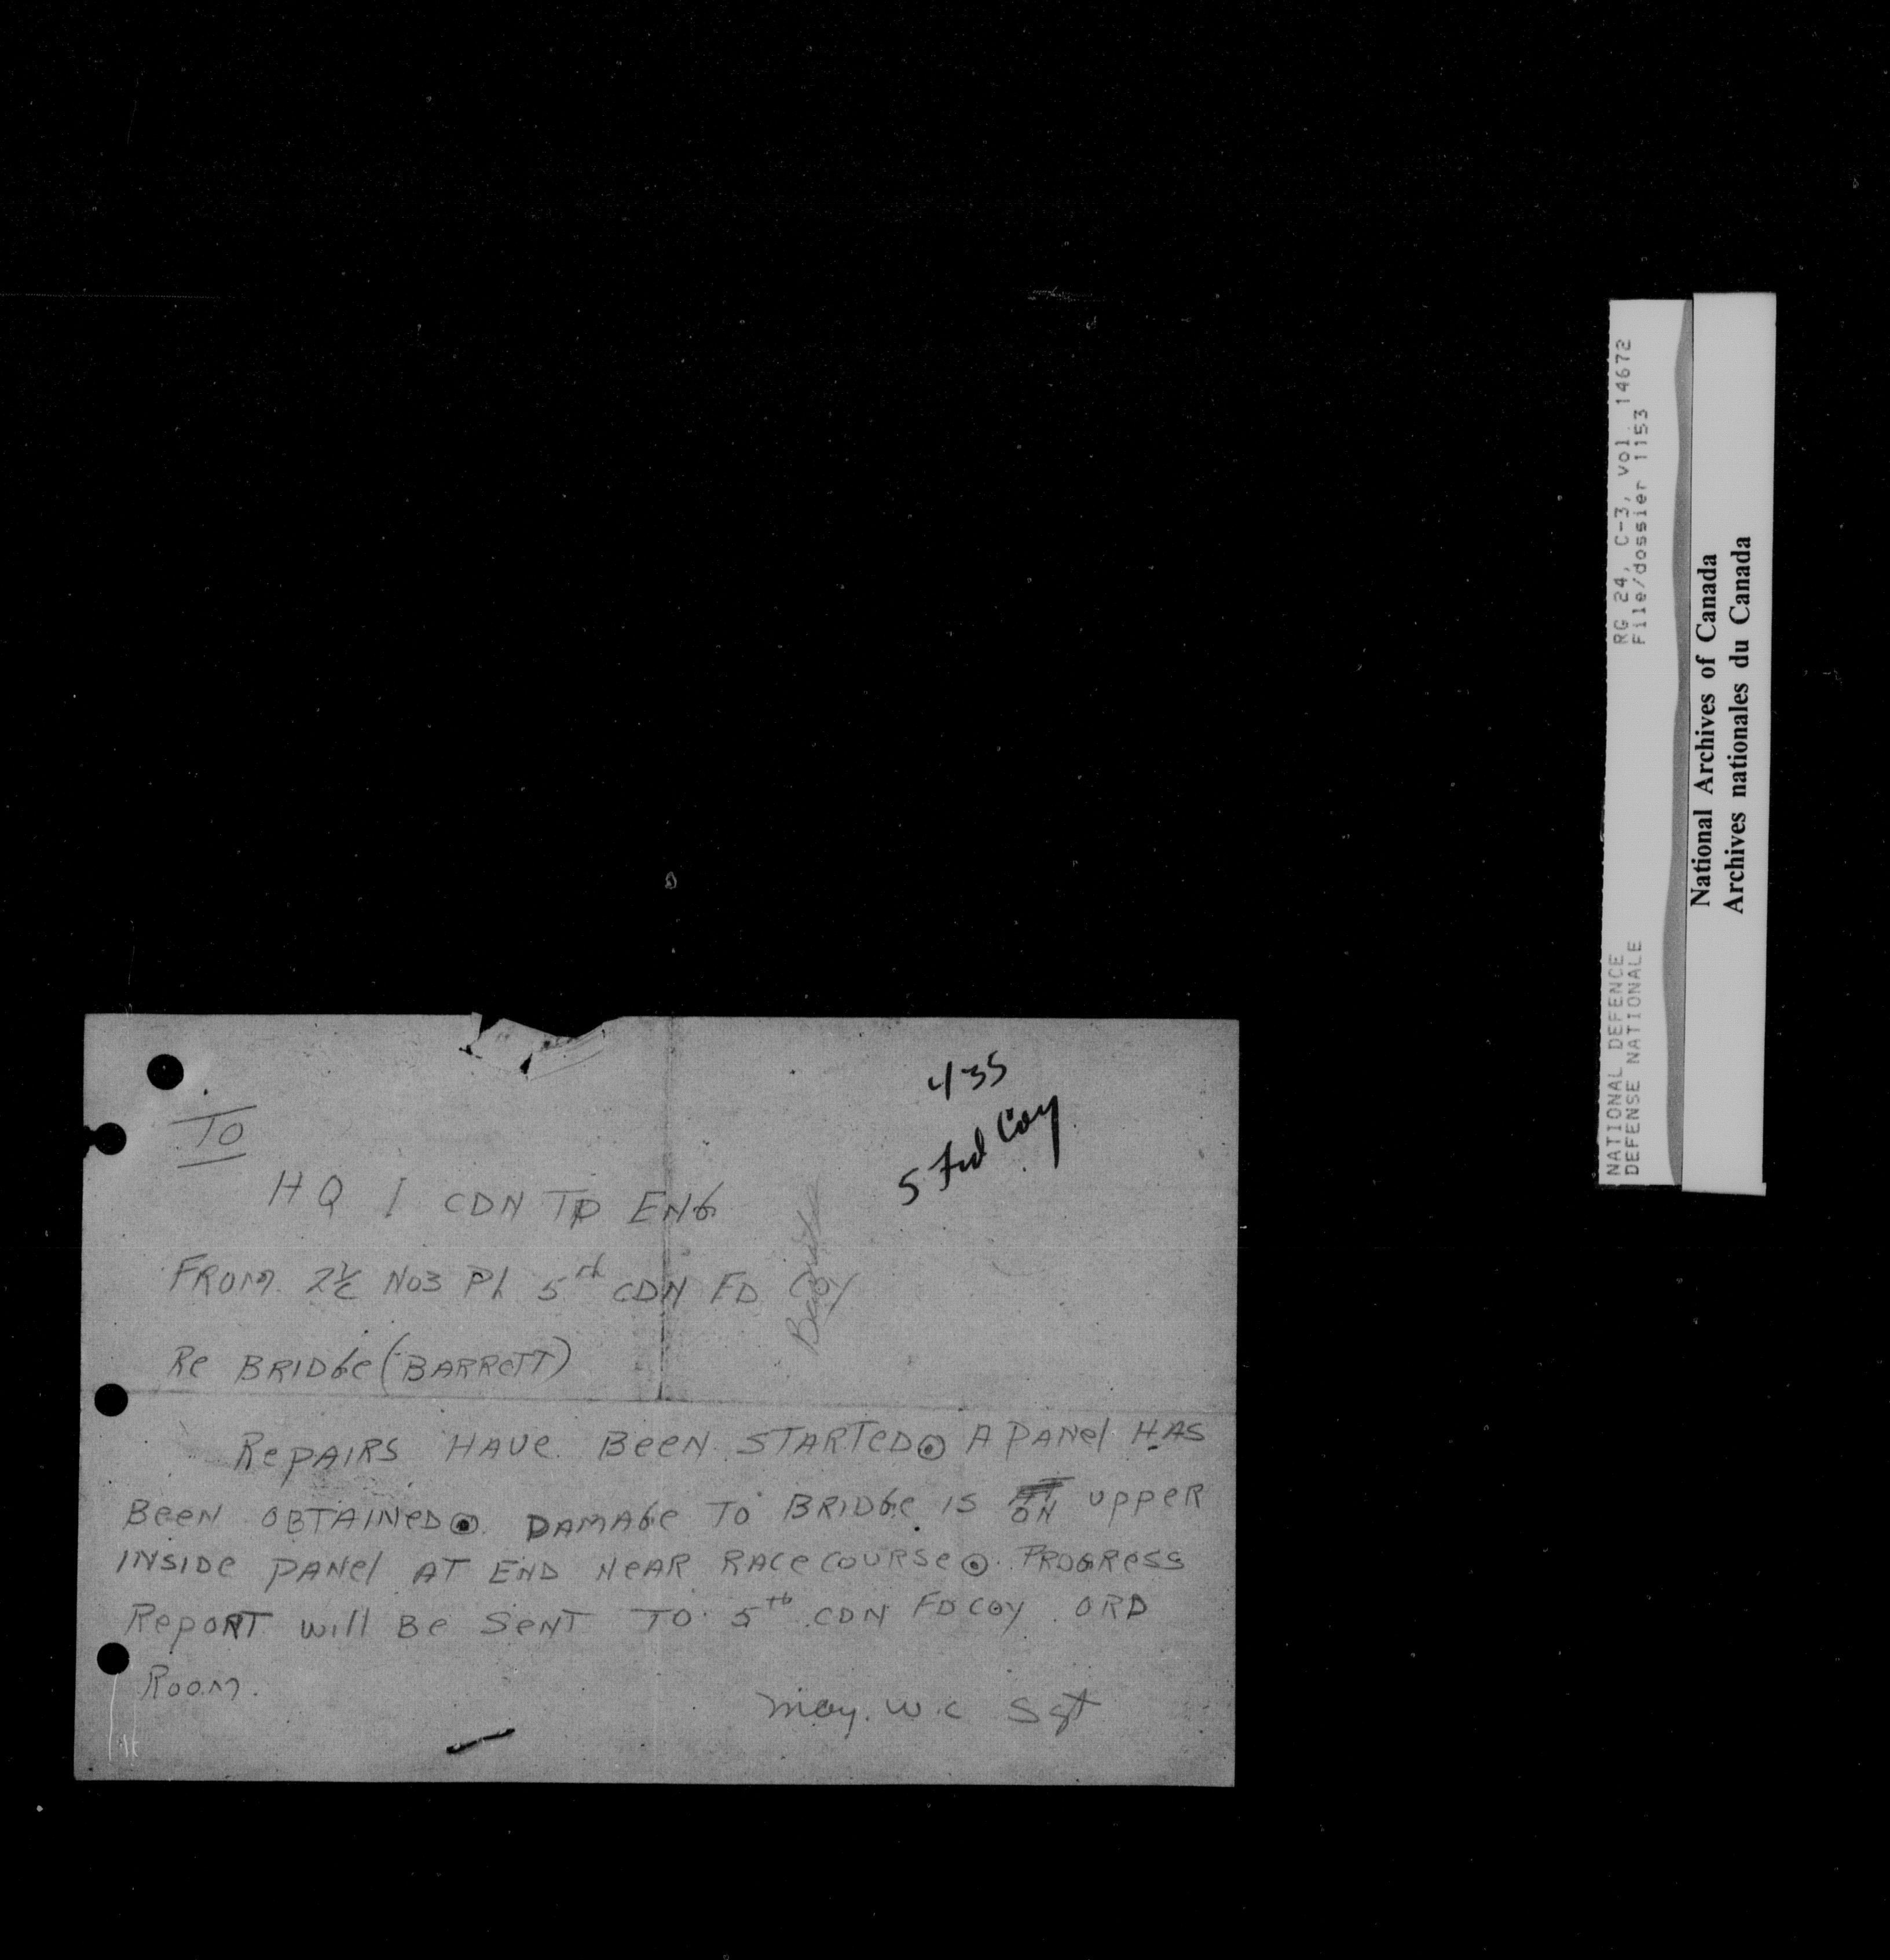 435
5 Fd Coy
TO
HQ 1 CDN TP ENG
FROM 2 I/C No3 Pl 5th CDN FD Coy
Re BRIDGe (BARReTT)
RePAIRS HAVe BeeN STARTeD⊙ A PANel HAS
BeeN OBTAINeD⊙ DAMAGe TO BRIDGe IS ON uppeR
INSIDe PANel AT END NeAR RACeCOURSe⊙ PROGReSS
RePORT will Be SeNT TO 5th CDN FD Coy ORD
ROOM.
May. W.C Sgt
RG 24, C-3, vol. 14672
File/dossier 1153
NATIONAL DEFENCE
DEFENSE NATIONALE
National Archives of Canada
Archives nationales du Canada